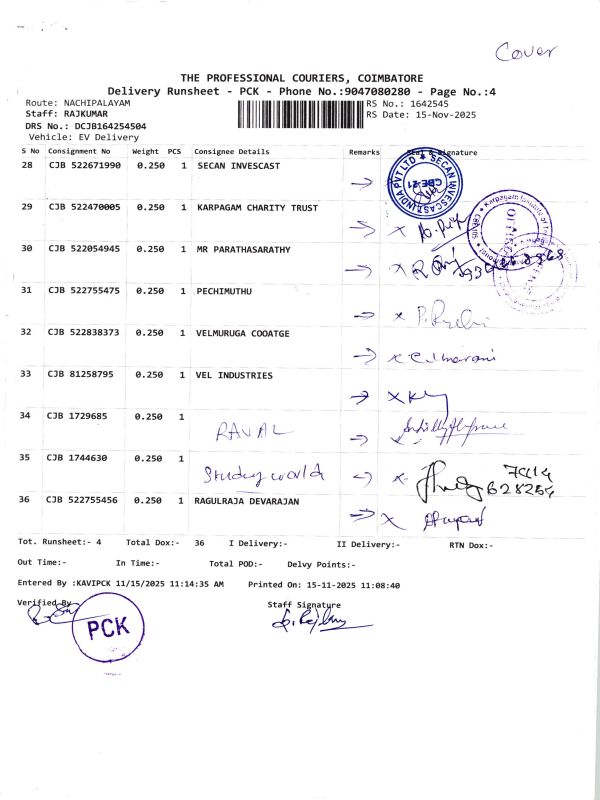 Cover
THE PROFESSIONAL COURIERS, COIMBATORE
Delivery Runsheet - PCK - Phone No.:9047080280 - Page No.:4
Route: NACHIPALAYAM RS No.: 1642545
Staff: RAJKUMAR RS Date: 15-Nov-2025
DRS No.: DCJB164254504
Vehicle: EV Delivery
S No Consignment No Weight PCS Consignee Details Remarks Seal & Signature
28 CJB 522671990 0.250 1 SECAN INVESCAST
SECAN INVESCAST INDIA PVT LTD CBE-21
29 CJB 522470005 0.250 1 KARPAGAM CHARITY TRUST
30 CJB 522054945 0.250 1 MR PARATHASARATHY
31 CJB 522755475 0.250 1 PECHIMUTHU
32 CJB 522838373 0.250 1 VELMURUGA COOATGE
33 CJB 81258795 0.250 1 VEL INDUSTRIES
34 CJB 1729685 0.250 1 RAVAL
35 CJB 1744630 0.250 1 Study world
36 CJB 522755456 0.250 1 RAGULRAJA DEVARAJAN
Tot. Runsheet:- 4 Total Dox:- 36 I Delivery:- II Delivery:- RTN Dox:-
Out Time:- In Time:- Total POD:- Delvy Points:-
Entered By :KAVIPCK 11/15/2025 11:14:35 AM Printed On: 15-11-2025 11:08:40
Verified By Staff Signature
PCK